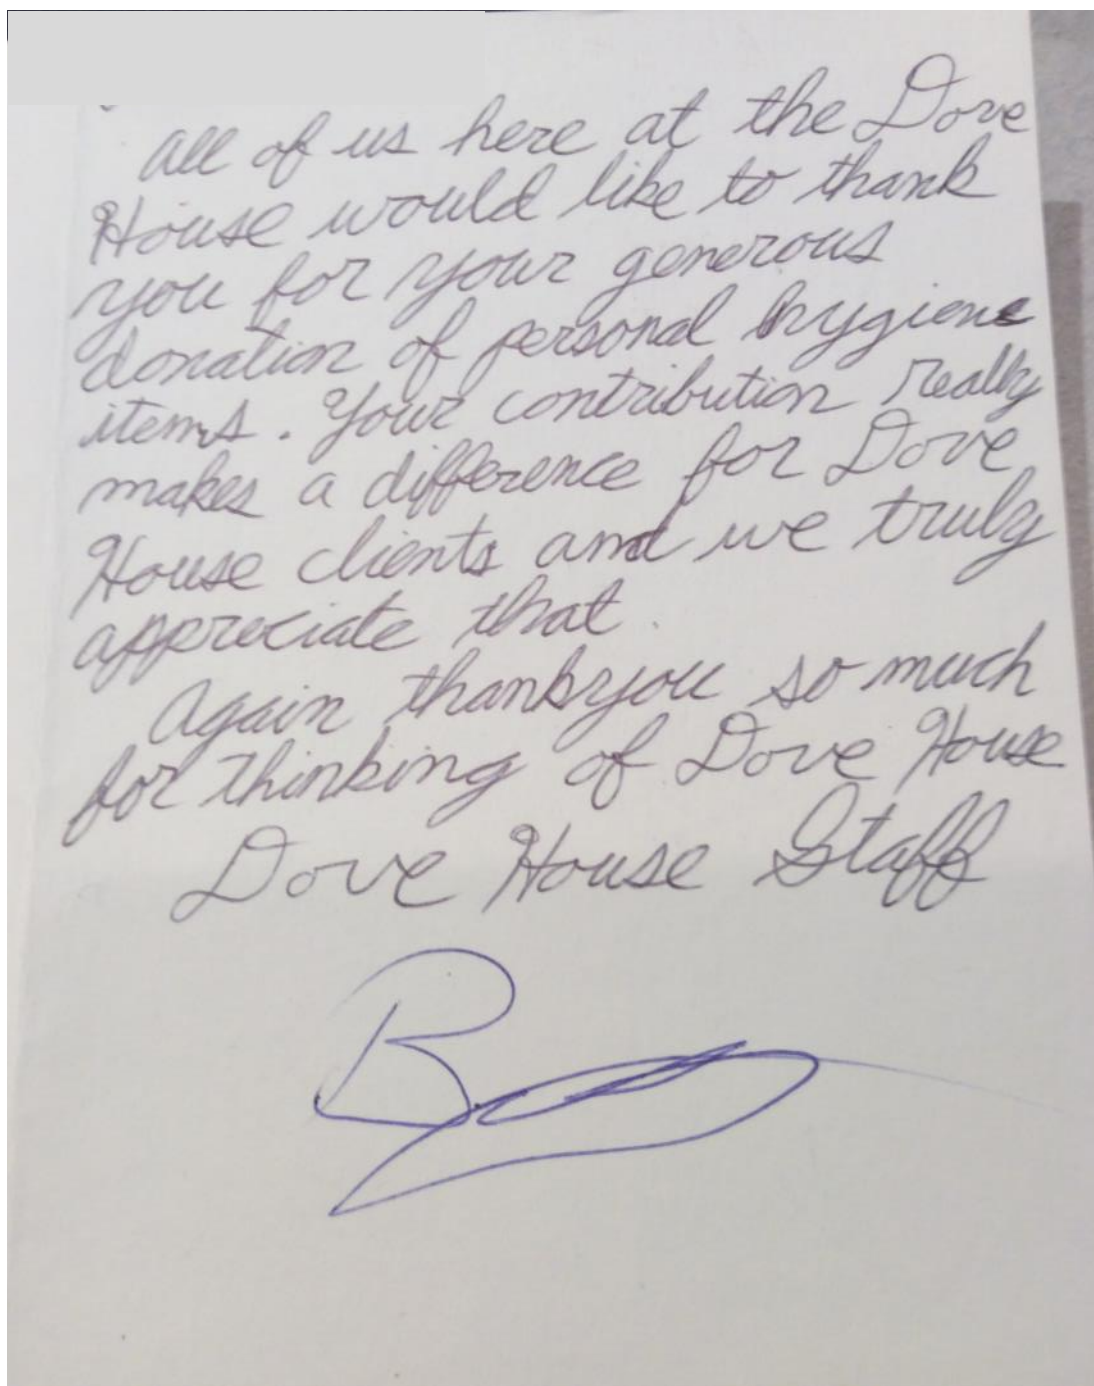 All of us here at the Dove
House would like to thank
you for your generous
donation of personal hygiene
items. Your contribution really
makes a difference for Dove
House clients and we truly
appreciate that.
Again thankyou so much
for thinking of Dove House
Dove House Staff